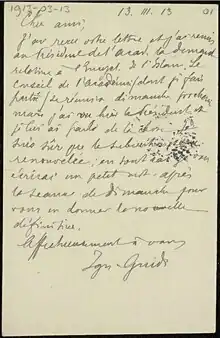 1913-03-13
13. III. 13
Cher ami,
J'ai reçu votre lettre et j'ai remis
au Président de l'Acad. la demande
relative à l'Encycl. de l'Islam. Le
Conseil de l'Académie (dont je fais
partie) se réunira dimanche prochain
mais j'ai vu hier le Président et
je lui ai parlé de la
sûr que la
renouvelée; en tout cas je vous
écrirai un petit mot après
la séance de dimanche pour
vous en donner la nouvelle
définitive.
Affectueusement à vous
Ign. Guidi